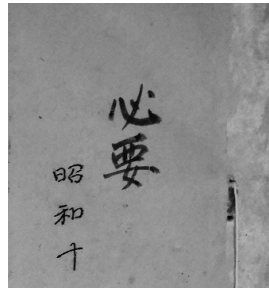 必要
昭和十